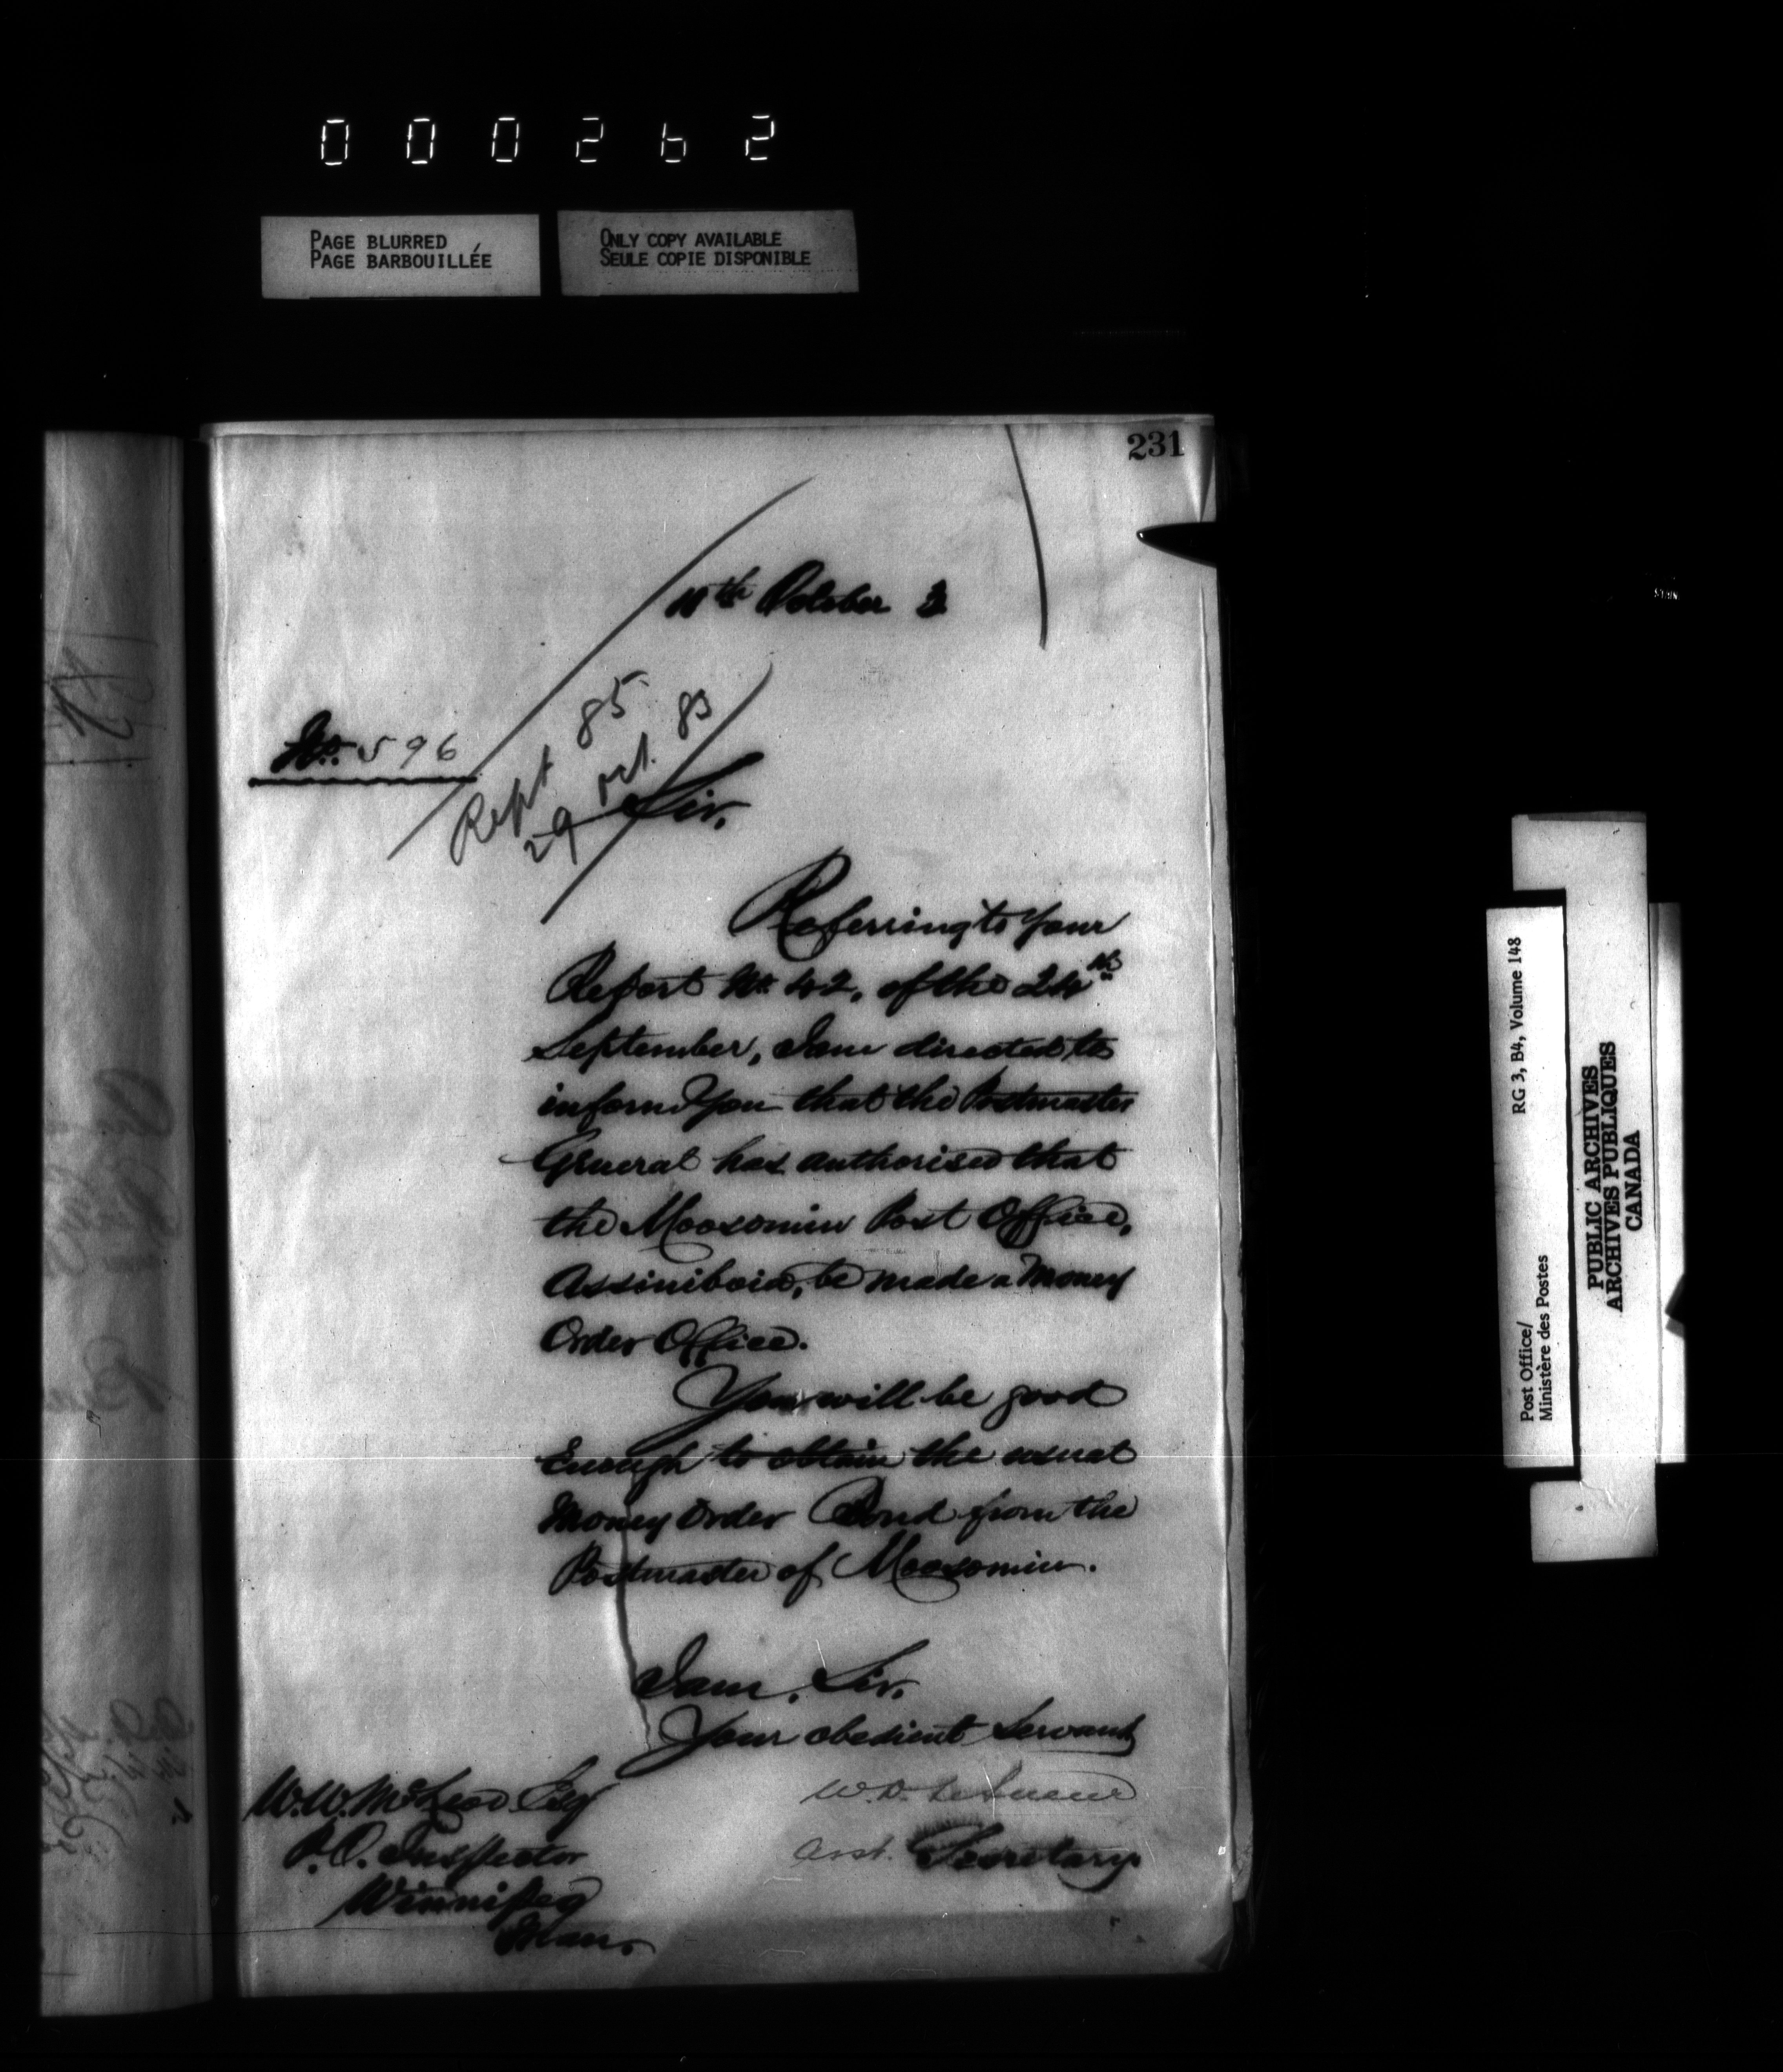 000262
PAGE BLURRED
PAGE BARBOUILLÉE
ONLY COPY AVAILABLE
SEULE COPIE DISPONIBLE
231
11th October 3
No. 596
Rept 85
29 Oct. 83
Sir,
Referring to your
Report No. 42, of the 24th
September, I am directed to
inform you that the Postmaster
General has authorised that
the Moosomin Post Office,
Assiniboia, be made a Money
Order Office.
You will be good
Enough to obtain the usual
Money Order Bond from the
Postmaster of Moosomin.
I am, Sir,
Your obedient Servant
W.D. LeSueur
Asst. Secretary
W.W. McLeod Esq
P.O. Inspector
Winnipeg
Man.
Post Office/
Ministère des Postes
RG 3, B4, Volume 148
PUBLIC ARCHIVES
ARCHIVES PUBLIQUES
CANADA